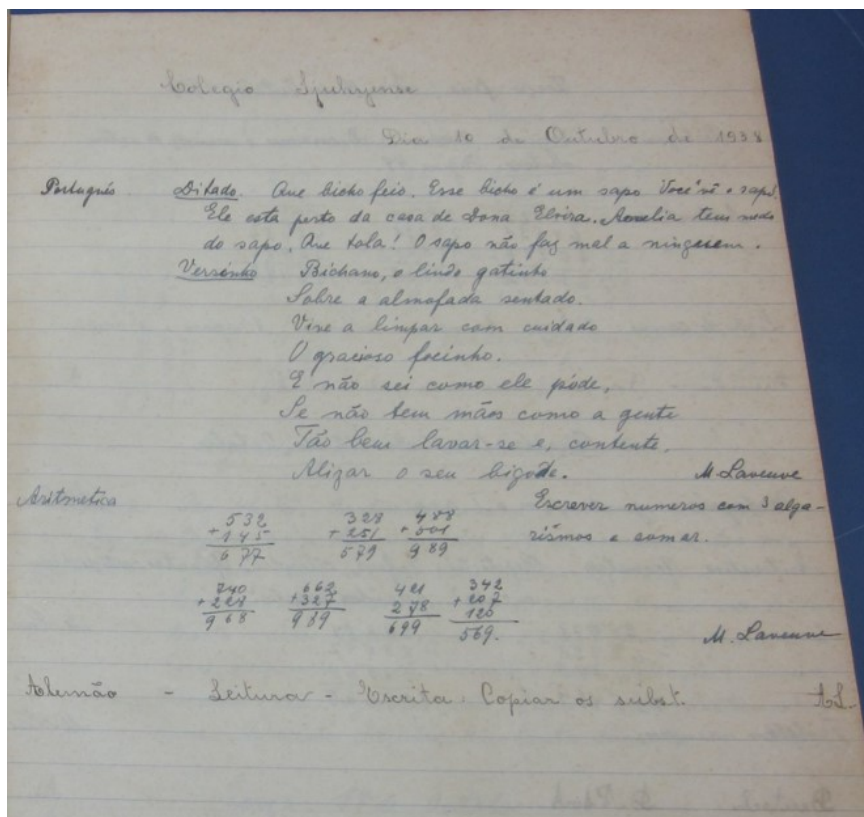 Colegio Ijuhyense
Dia 10 de Outubro de 1938
Portugués Ditado. Que bicho feio. Esse bicho é um sapo Você vê o sapo?
Ele está perto da casa de Dona Elvira. Amelia tem medo
do sapo. Que tola! O sapo não faz mal a ninguem.
Versinho Bichano, o lindo gatinho
Sobre a almofada sentado.
Vive a limpar com cuidado
O gracioso focinho.
E não sei como ele póde,
Se não tem mãos como a gente
Tão bem lavar-se e, contente,
Alizar o seu bigode. M. Laveuve
Aritmetica Escrever numeros com 3 alga-
rismos e somar.
532 328 488
+145 +251 +501
677 579 989
740 662 421 342
+228 +327 278 +207
968 989 699 120
569.
M. Laveuve
Alemão - Leitura - Escrita Copiar os subst. A.L.